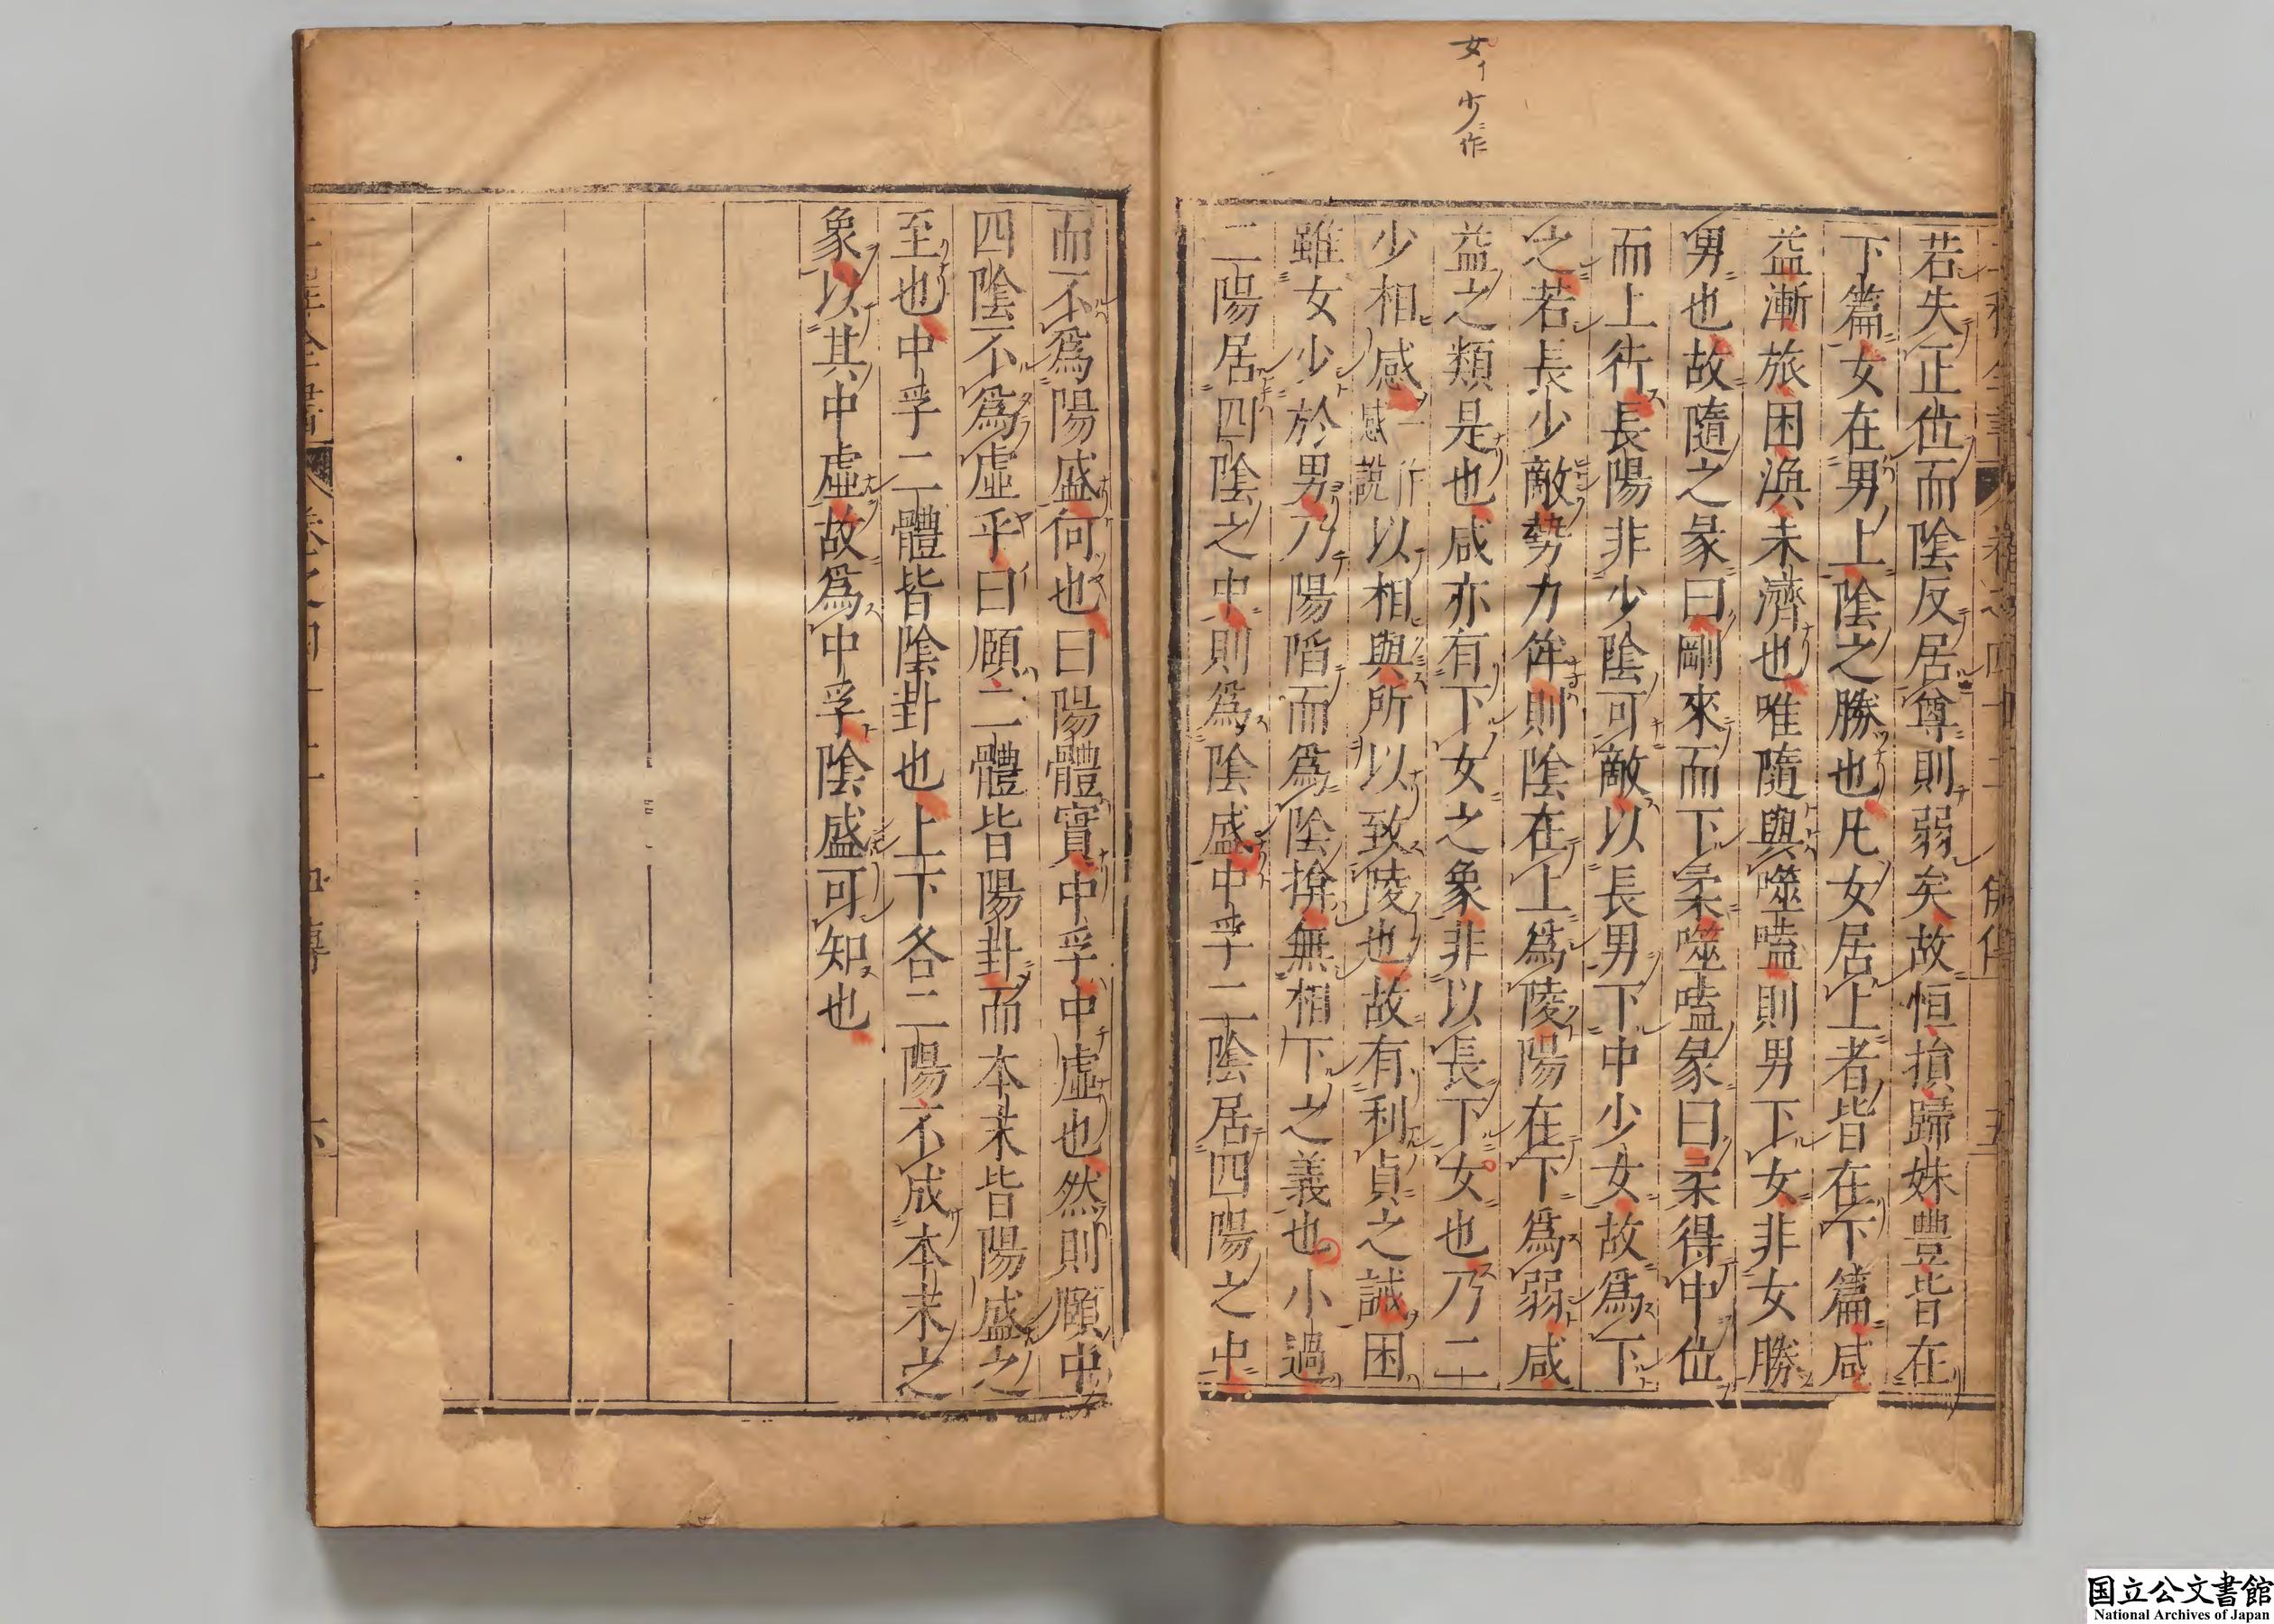 女イ少ニ作
若失正位而陰反居尊則弱矣故恒損歸妹豐皆在
下篇女在男上陰之勝也凡女居上者皆在下篇咸
益漸旅困渙未濟也唯隨與噬嗑則男下女非女勝
男也故隨之彖曰剛來而下柔噬嗑彖曰柔得中位
而上行長陽非少陰可敵以長男下中少女故爲下
之若長少敵勢力侔則陰在上爲陵陽在下爲弱咸
益之類是也咸亦有下女之象非以長下女也乃二
少相感感一作說以相與所以致陵也故有利貞之誡困
雖女少於男乃陽陷而爲陰揜無相下之義也小過
二陽居四陰之中則爲陰盛中孚二陰居四陽之中
而不爲陽盛何也曰陽體實中孚中虛也然則頤中
四陰不爲虛乎曰頤二體皆陽卦而本末皆陽盛之
至也中孚二體皆陰卦也上下各二陽不成本末之
象以其中虛故爲中孚陰盛可知也
国立公文書館
National Archives of Japan